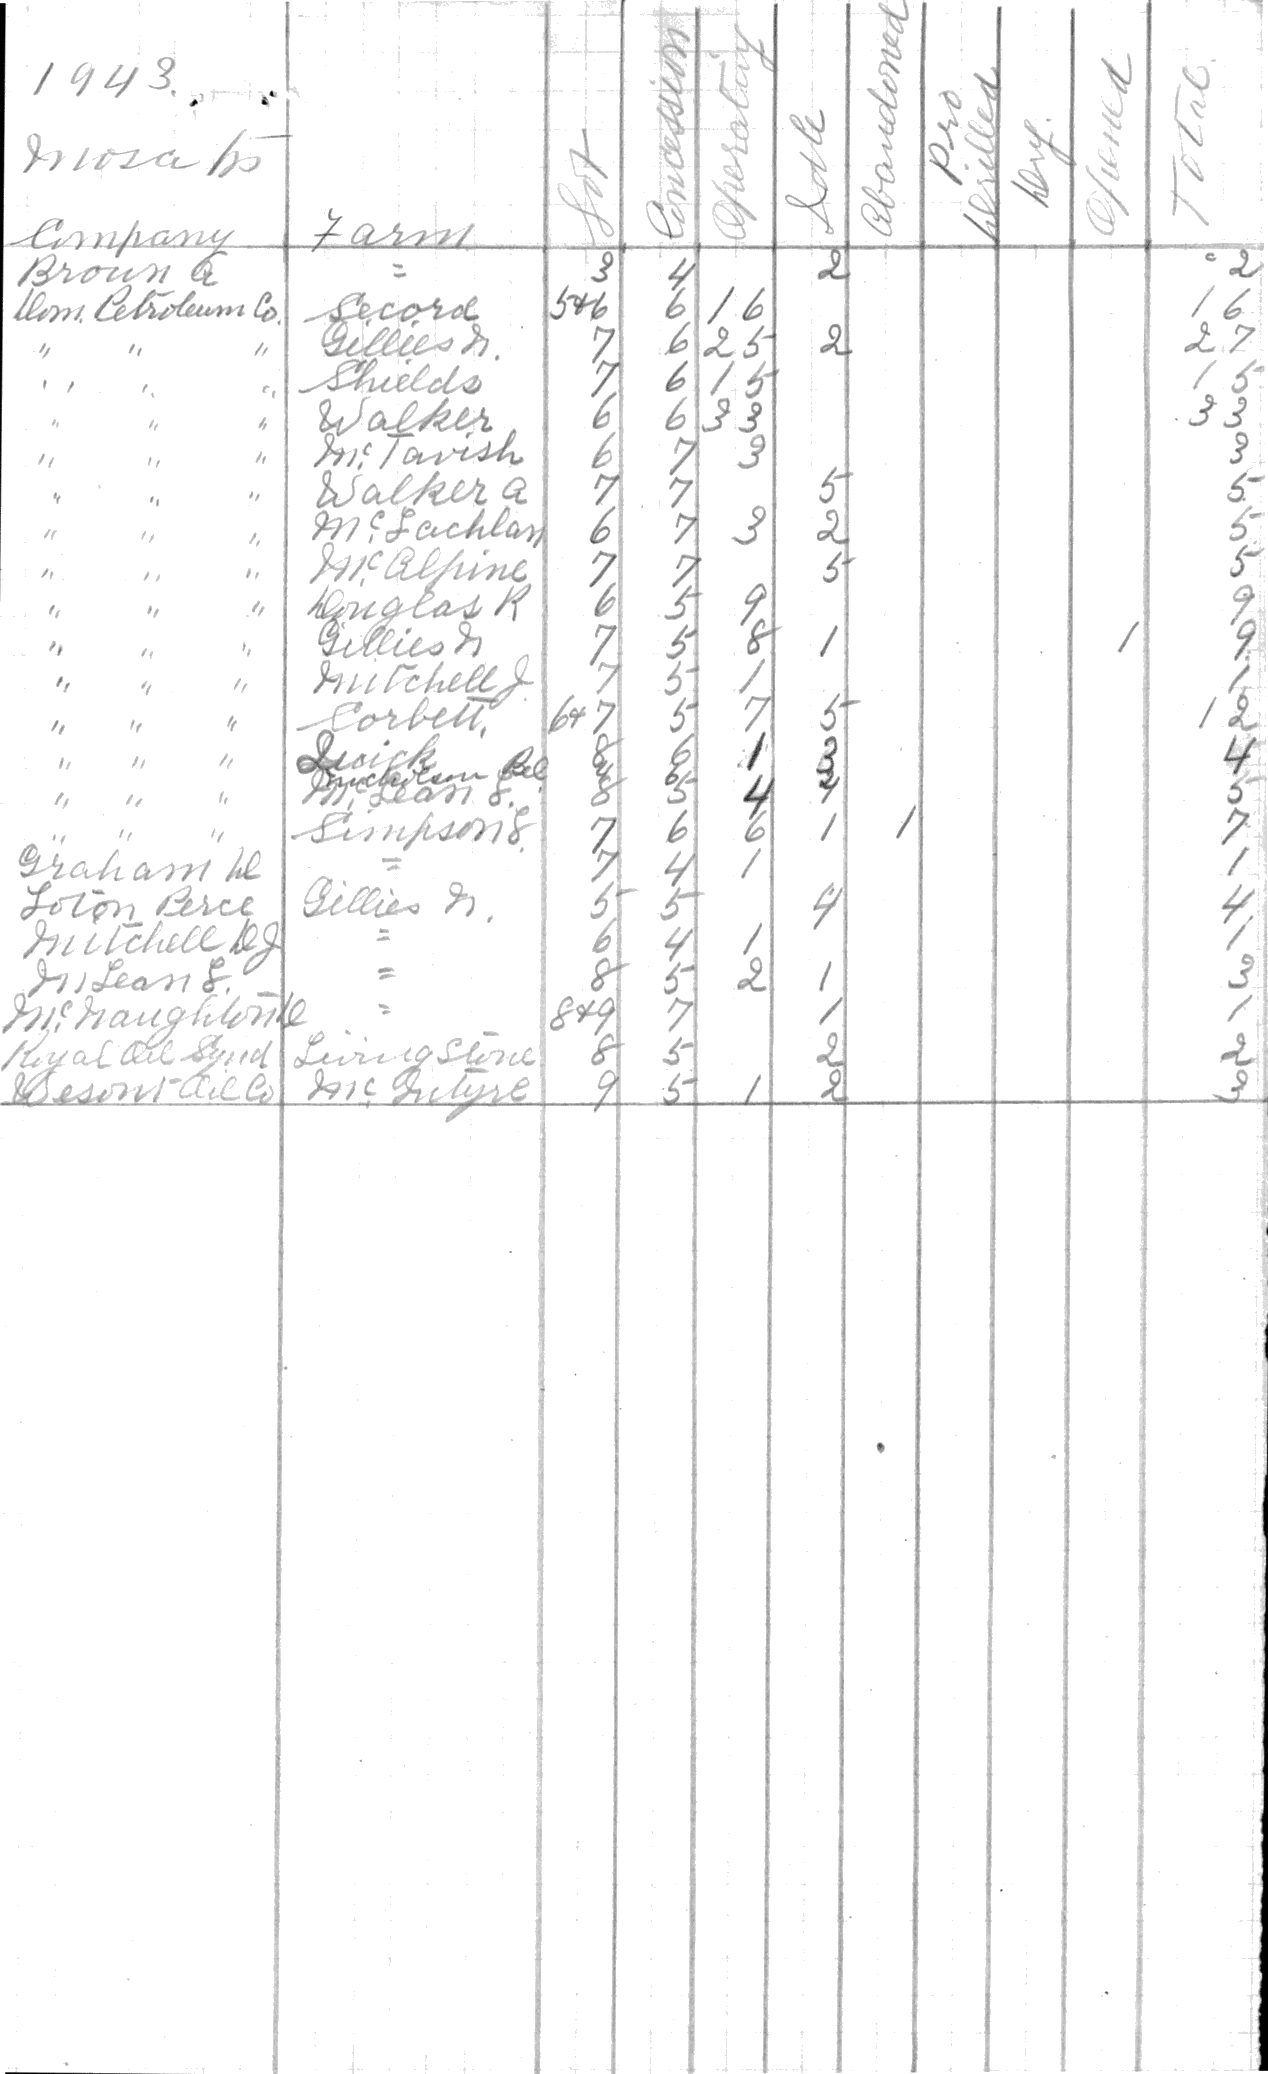 1943.
Mosa Tp
Company Farm Lot Concession Operating Idle Abandoned Pro Drilled Dry. Opened Total.
Brown A = 3 4 2 2
Dom. Petroleum Co. Secord 5+6 6 16 16
" " " Gillies N. 7 6 25 2 27
" " " Shields 7 6 15 15
" " " Walker 6 6 33 33
" " " McTavish 6 7 3 3
" " " Walker A 7 7 5 5
" " " McLachlan 6 7 3 2 5
" " " McAlpine 7 7 5 5
" " " Douglas R 6 5 9 9
" " " Gillies N 7 5 8 1 1 9
" " " Mitchell J 7 5 1 1
" " " Corbett. 6+7 5 7 5 12
" " " Quick 8 6 1 3 4
Nicholson
" " " McLean L. 8 5 4 1 5
" " " Simpson L. 7 6 6 1 1 7
Graham D = 7 4 1 1
Loton Perce Gillies N. 5 5 4 4
Mitchell D J = 6 4 1 1
McLean L. = 8 5 2 1 3
McNaughton D = 8+9 7 1 1
Royal Oil Synd Livingstone 8 5 2 2
Oil Co McIntyre 9 5 1 2 3